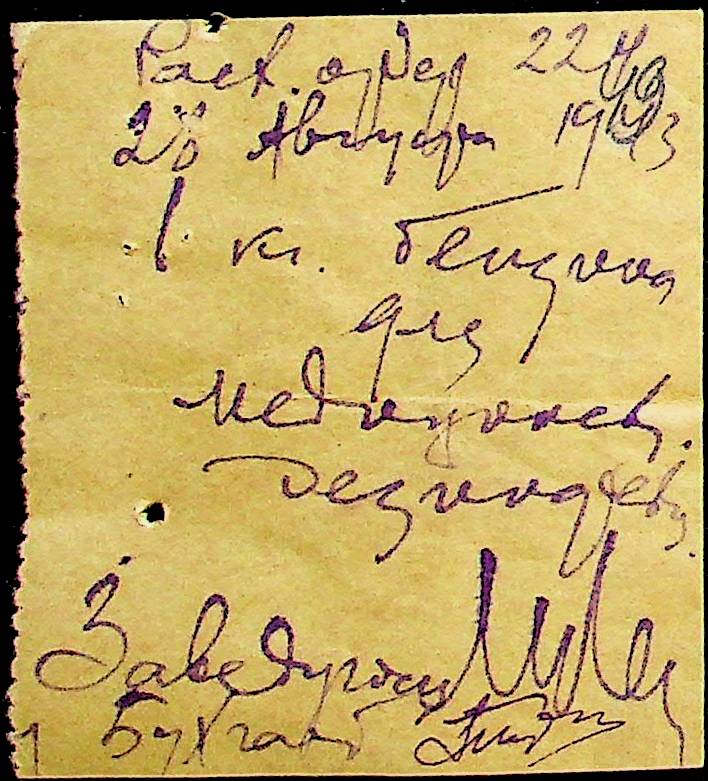 Расх. ордер 22
28 Августа 1943
1 кг. бензина
для
медицинск.
дезинфекц.
Заведующ
Бухгалт